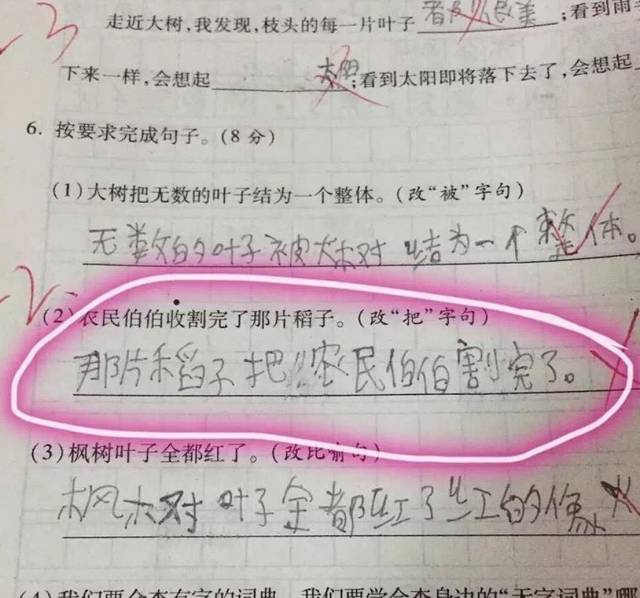 走近大树,我发现,枝头的每一片叶子 ;看到雨
下来一样,会想起 太阳;看到太阳即将落下去了,会想起
6. 按要求完成句子。(8分)
(1)大树把无数的叶子结为一个整体。(改“被”字句)
无数的叶子被大树结为一个整体。
(2)农民伯伯收割完了那片稻子。(改“把”字句)
那片稻子把农民伯伯割完了。
(3)枫树叶子全都红了。(改比喻句)
枫树叶子全都红了红的像火
(4)我们要会查有字的词典,我们要学会查身边的“无字词典”哪